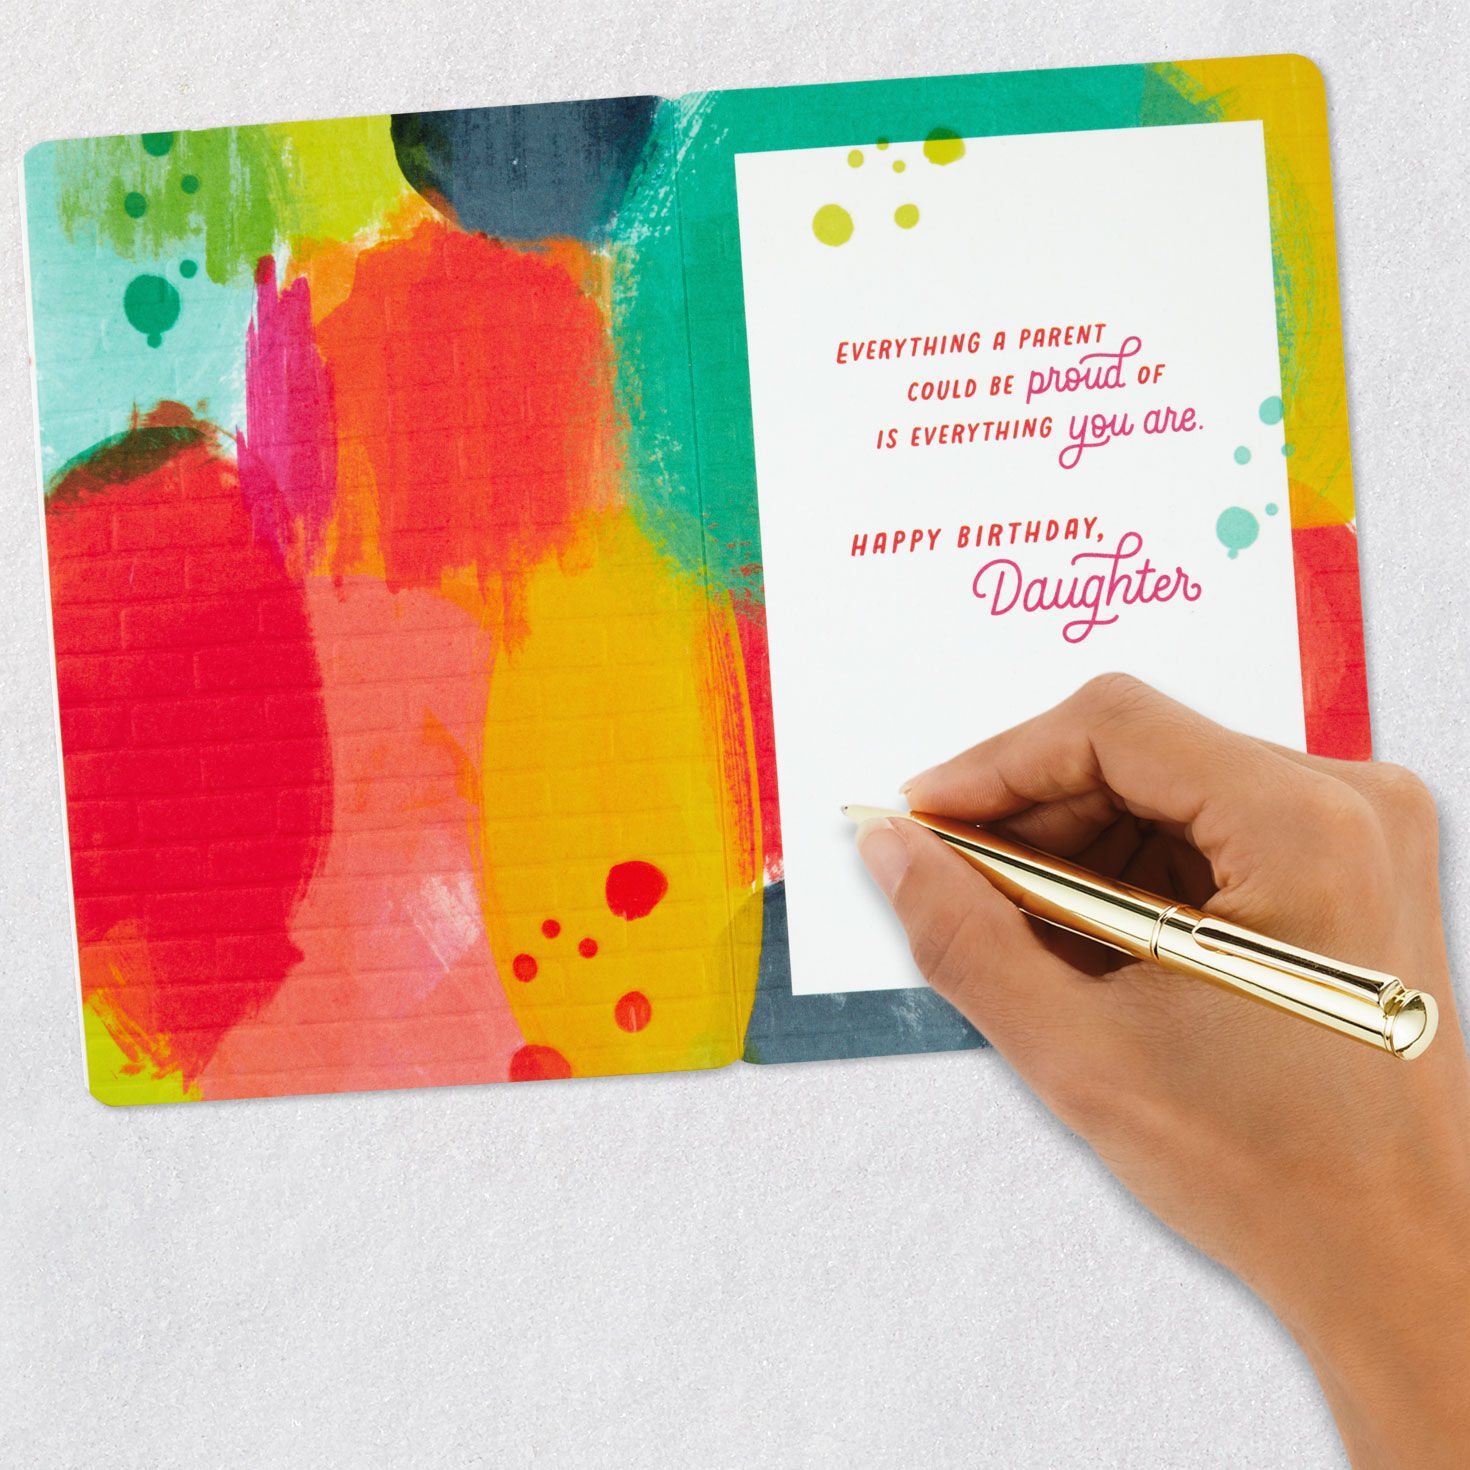 EVERYTHING A PARENT
COULD BE proud OF
IS EVERYTHING you are.
HAPPY BIRTHDAY,
Daughter